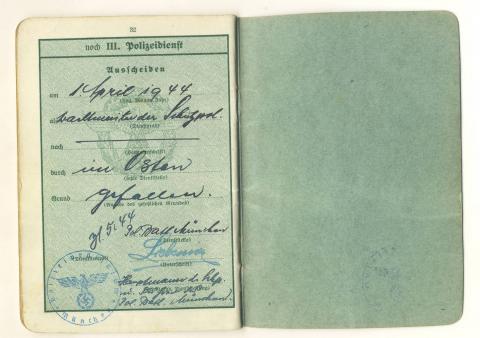 32
noch III. Polizeidienst
Ausscheiden
am 1. April 1944
(Tag, Monat, Jahr)
als Wachtmeister der Schutzpol.
(Dienstgrad)
nach
durch im Osten
(letzte Dienststelle)
Grund gefallen.
(Angabe des gesetzlichen Grundes)
31.5.44
Pol. Batl. München
(Dienststelle)
(Unterschrift)
Hauptmann d. Schp.
Pol. Batl. München.